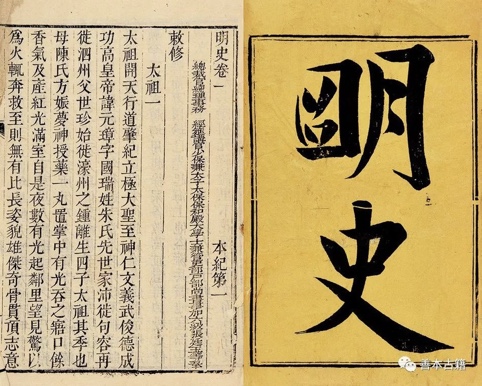 明史
明史卷一　本紀第一
總裁官總理事務　經筵講官少保兼太子太保保和殿大學士兼管吏部戶部尚書事加六級張廷玉等奉
敕修
太祖一
太祖開天行道肇紀立極大聖至神仁文義武俊德成
功高皇帝諱元璋字國瑞姓朱氏先世家沛徙句容再
徙泗州父世珍始徙濠州之鍾離生四子太祖其季也
母陳氏方娠夢神授藥一丸置掌中有光吞之寤口餘
香氣及產紅光滿室自是夜數有光起鄰里望見驚以
爲火輒奔救至則無有比長姿貌雄傑奇骨貫頂志意
善本古籍